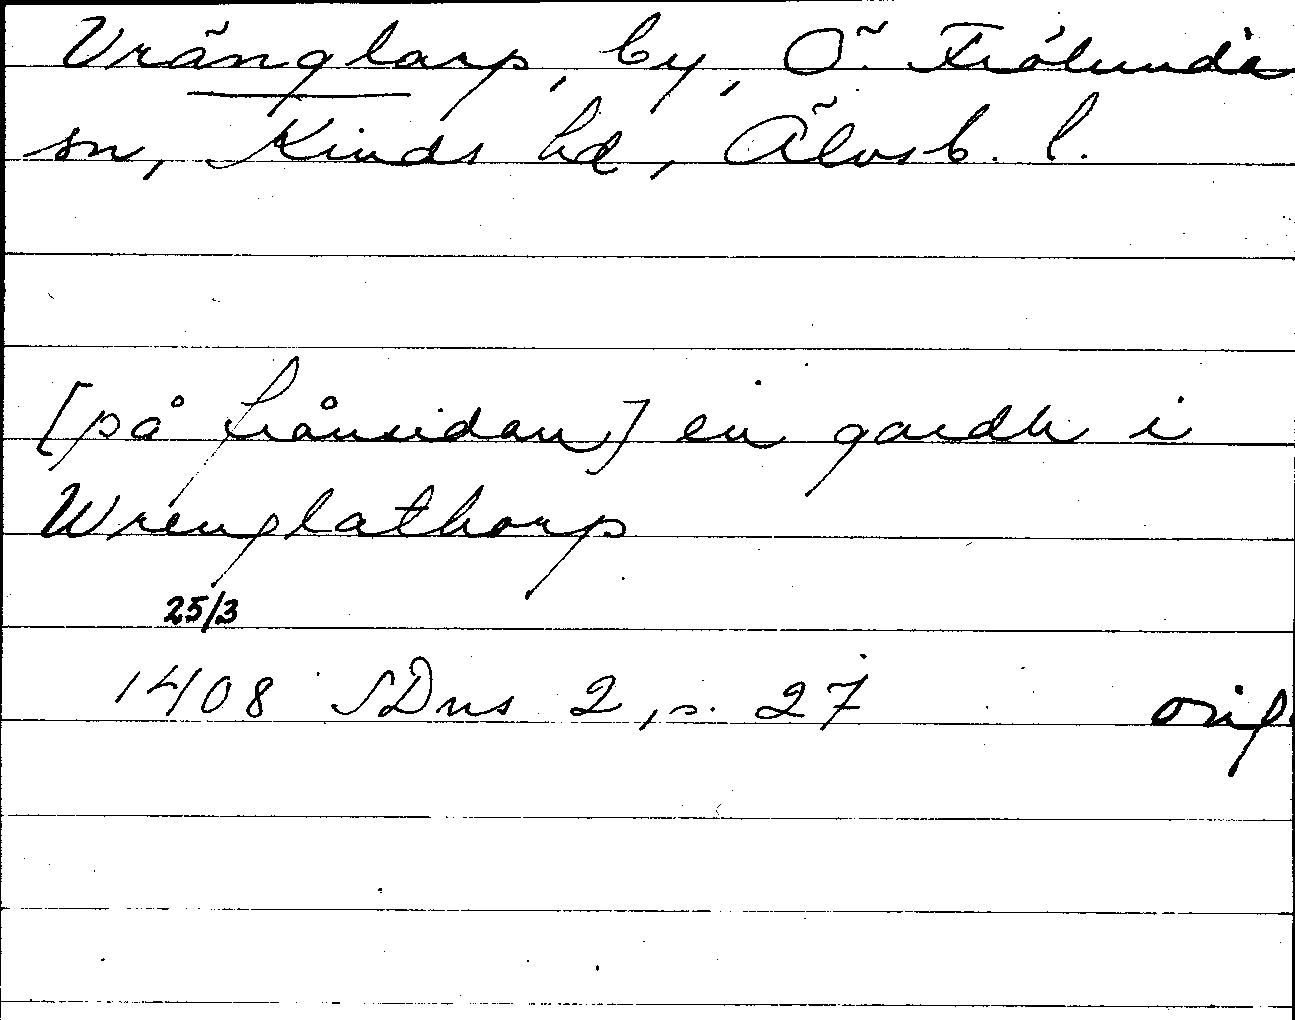 Vränglarp, by, Ö. Frölunda
sn, Kinds hd, Älvsb. l.
[på frånsidan] en gardh i
Wrenglathorp
25/3
1408 SDns 2, s. 27 orig.